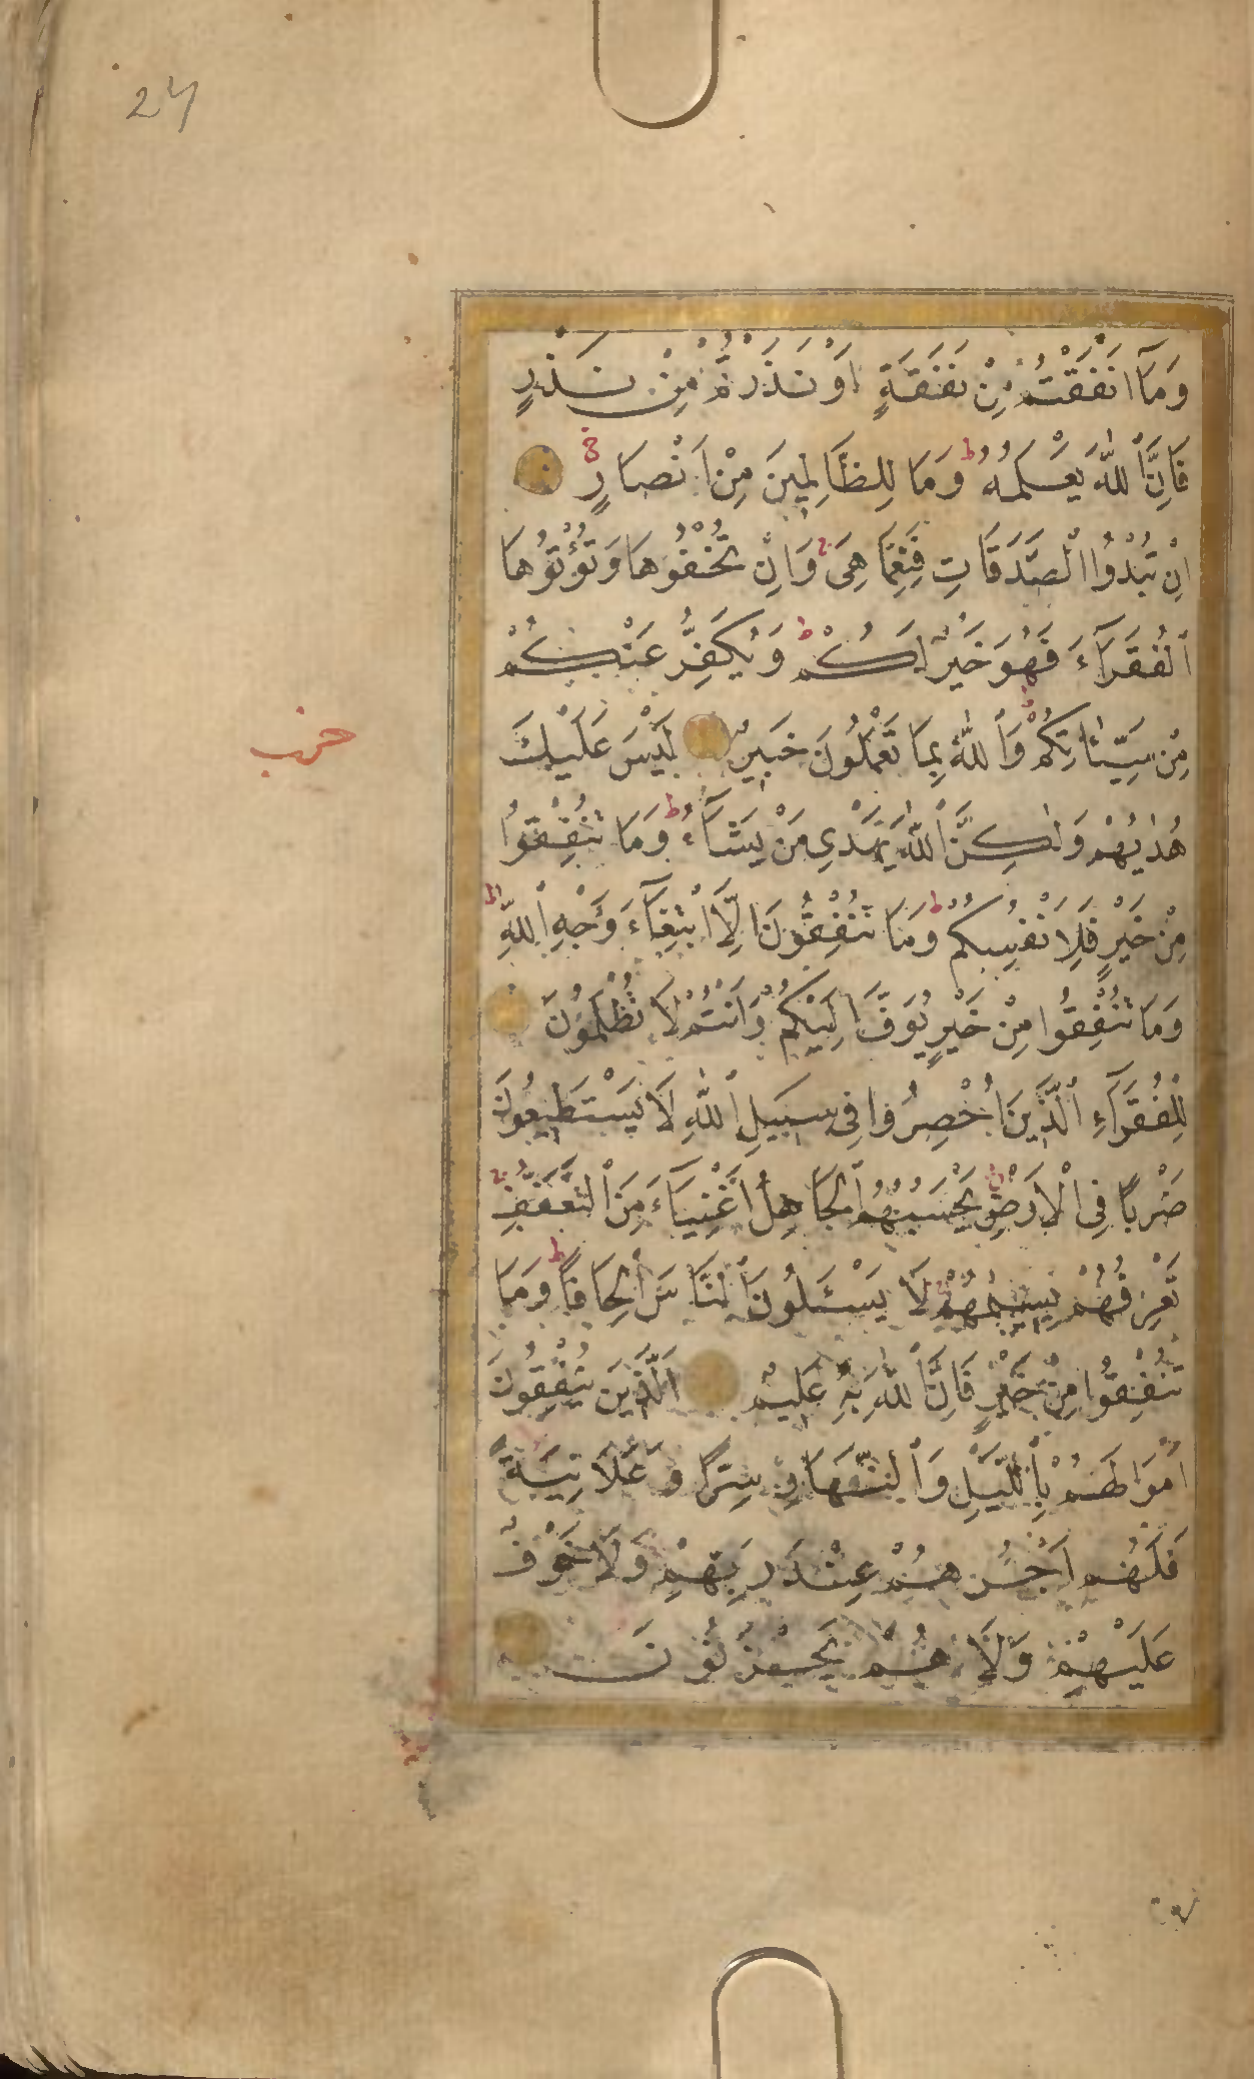 24
وَمَآ اَنْفَقْتُمْ مِنْ نَفَقَةٍ اَوْ نَذَرْتُمْ مِنْ نَذْرٍ
فَاِنَّ اللّٰهَ يَعْلَمُهُ ط وَمَا لِلظَّالِمِينَ مِنْ اَنْصَارٍ
اِنْ تُبْدُوا الصَّدَقَاتِ فَنِعِمَّا هِىَ ج وَاِنْ تُخْفُوهَا وَتُؤْتُوهَا
الْفُقَرَآءَ فَهُوَ خَيْرٌ لَكُمْ ط وَيُكَفِّرُ عَنْكُمْ
مِنْ سَيِّئَاتِكُمْ وَاللّٰهُ بِمَا تَعْمَلُونَ خَبِيرٌ لَيْسَ عَلَيْكَ
حزب
هُدٰيهُمْ وَلٰكِنَّ اللّٰهَ يَهْدِى مَنْ يَشَآءُ ط وَمَا تُنْفِقُوا
مِنْ خَيْرٍ فَلِاَنْفُسِكُمْ ط وَمَا تُنْفِقُونَ اِلَّا ابْتِغَآءَ وَجْهِ اللّٰهِ ط
وَمَا تُنْفِقُوا مِنْ خَيْرٍ يُوَفَّ اِلَيْكُمْ وَاَنْتُمْ لَا تُظْلَمُونَ
لِلْفُقَرَآءِ الَّذِينَ اُحْصِرُوا فِى سَبِيلِ اللّٰهِ لَا يَسْتَطِيعُونَ
ضَرْبًا فِى الْاَرْضِ يَحْسَبُهُمُ الْجَاهِلُ اَغْنِيَآءَ مِنَ التَّعَفُّفِ ج
تَعْرِفُهُمْ بِسِيمٰهُمْ ج لَا يَسْئَلُونَ النَّاسَ اِلْحَافًا ط وَمَا
تُنْفِقُوا مِنْ خَيْرٍ فَاِنَّ اللّٰهَ بِهِ عَلِيمٌ اَلَّذِينَ يُنْفِقُونَ
اَمْوَالَهُمْ بِالَّيْلِ وَالنَّهَارِ سِرًّا وَعَلَانِيَةً
فَلَهُمْ اَجْرُهُمْ عِنْدَ رَبِّهِمْ وَلَا خَوْفٌ
عَلَيْهِمْ وَلَا هُمْ يَحْزَنُونَ